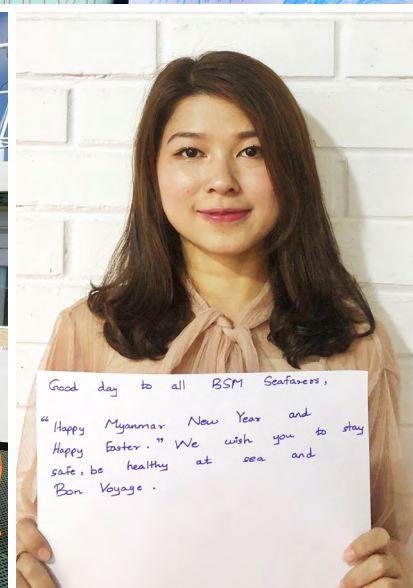 Good day to all BSM Seafarers,
“Happy Myanmar New Year and
Happy Easter.” We wish you to stay
safe, be healthy at sea and
Bon Voyage.